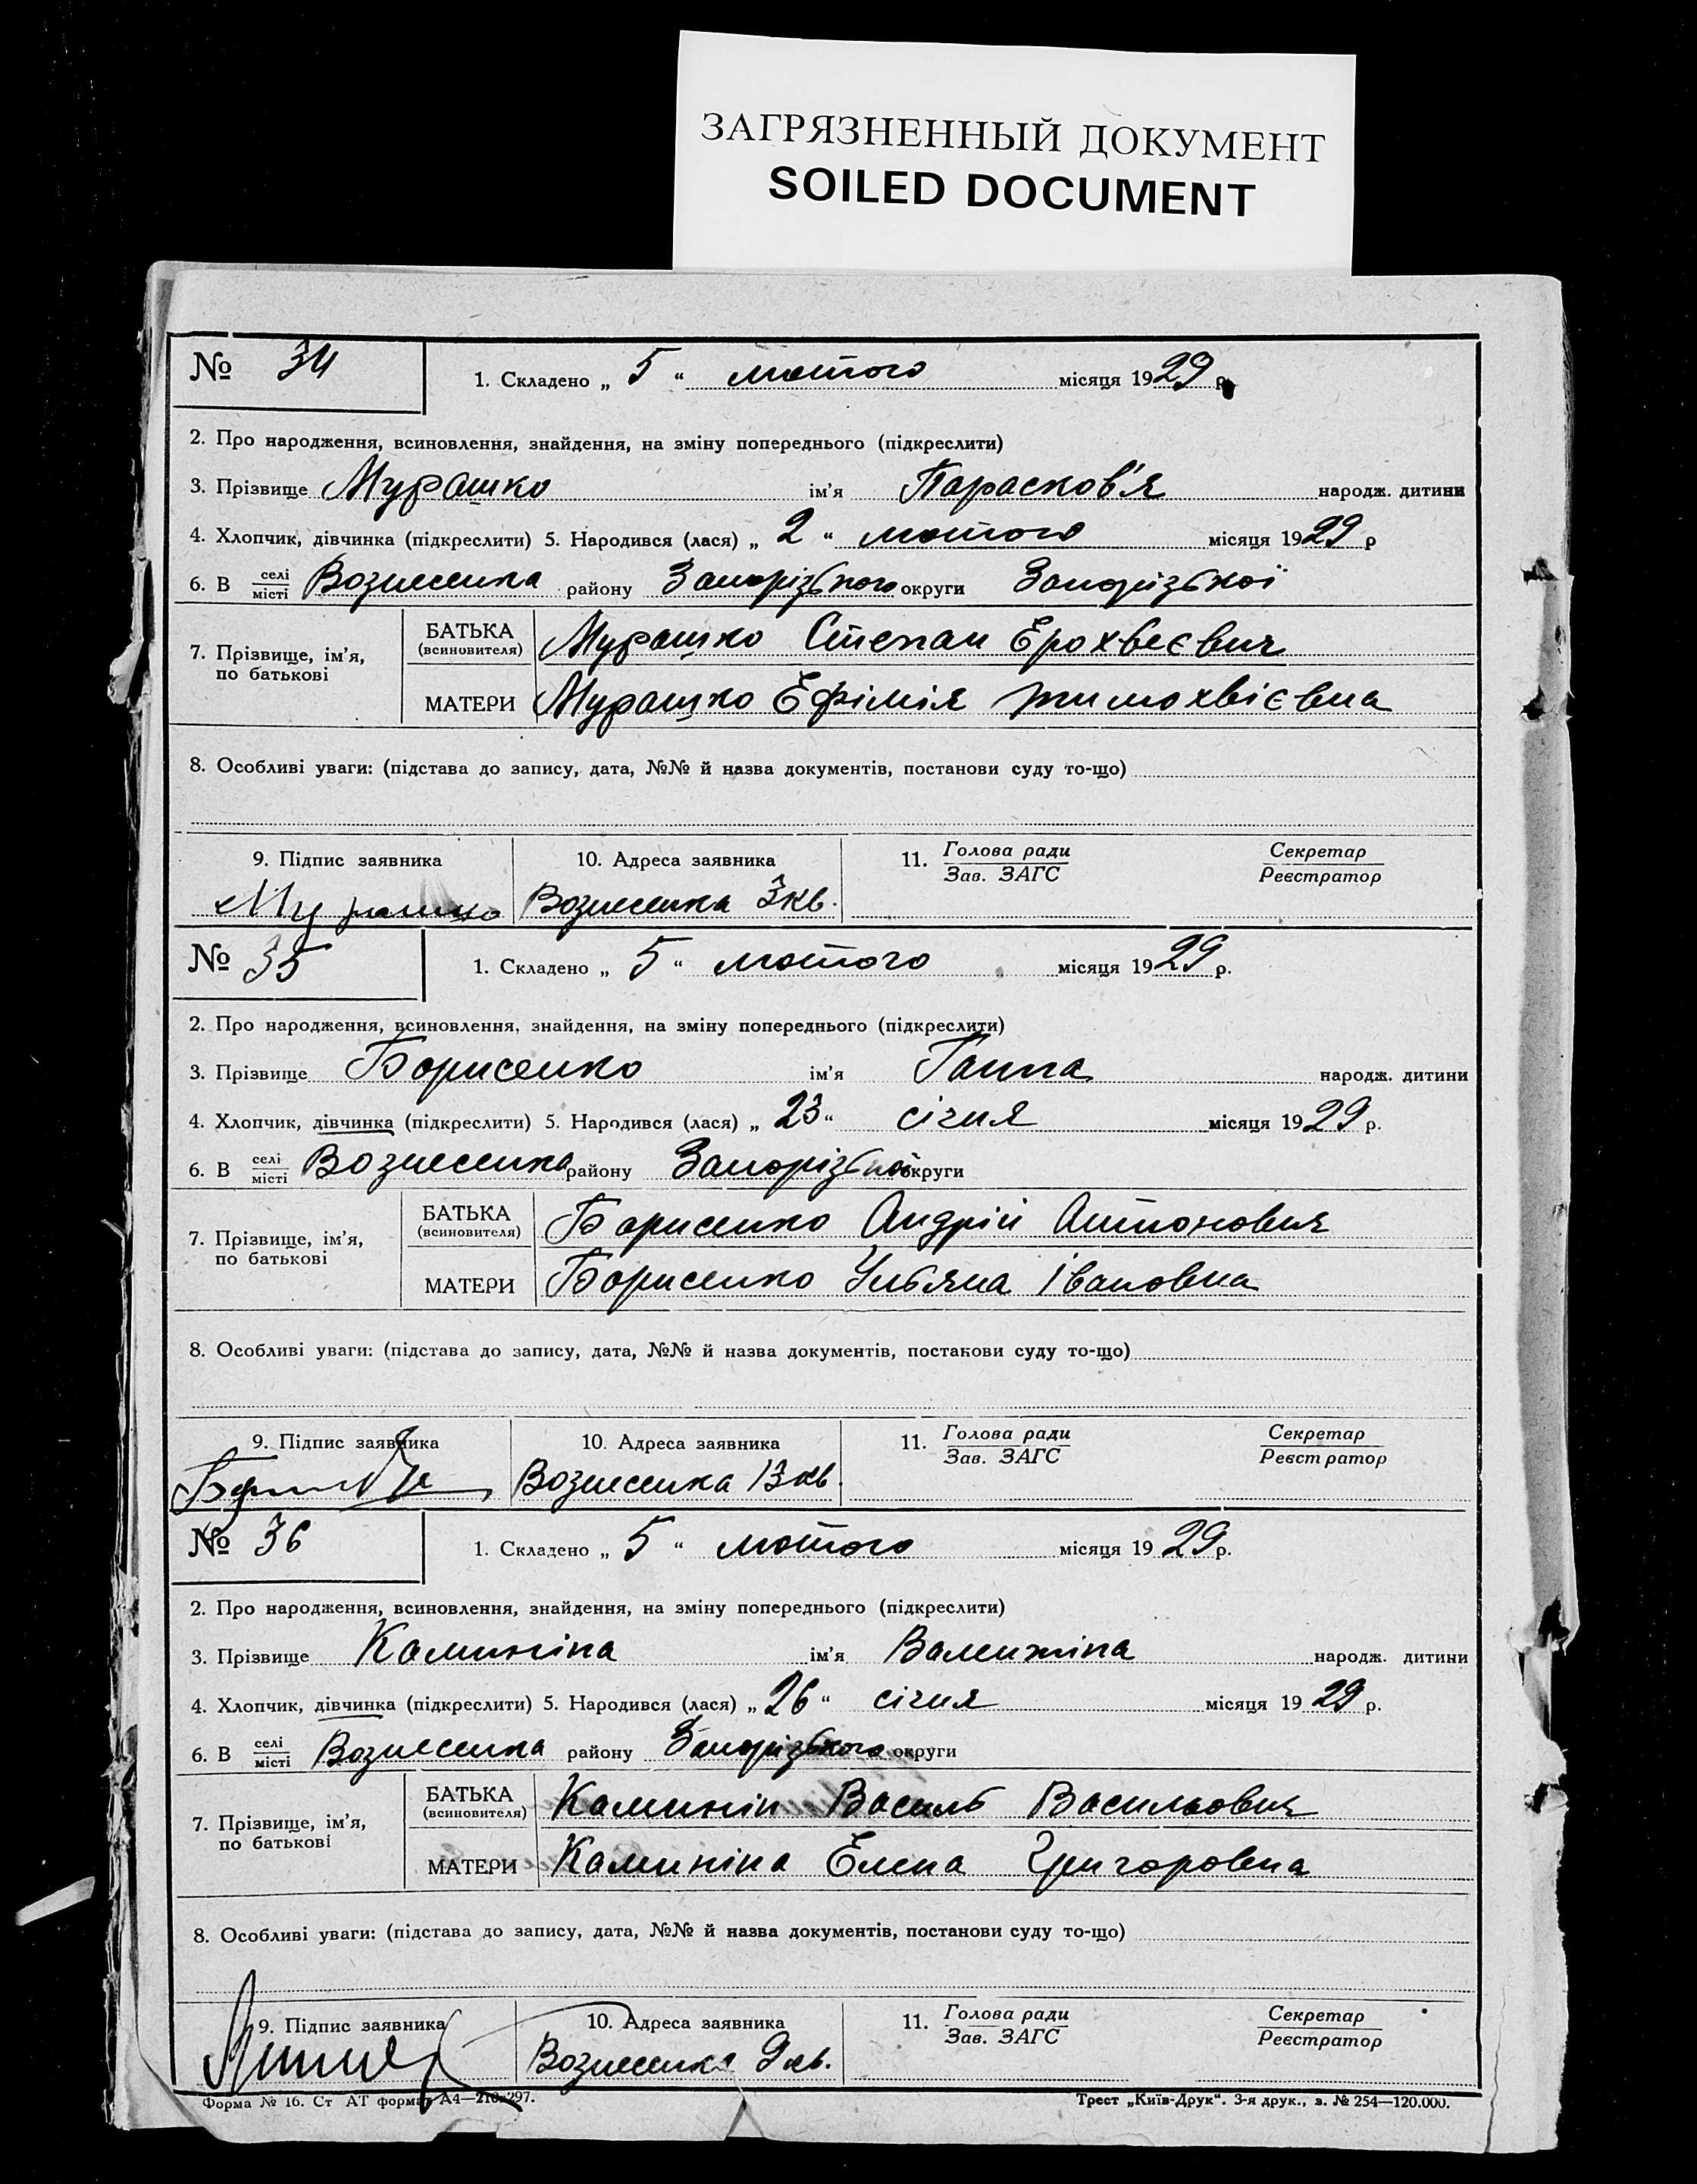 ЗАГРЯЗНЕННЫЙ ДОКУМЕНТ
SOILED DOCUMENT
№ 34 1. Складено „ 5 “ лютого місяця 1929 р.
2. Про народження, всиновлення, знайдення, на зміну попереднього (підкреслити)
3. Прізвище Мурашко ім'я Парасков'я народж. дитини
4. Хлопчик, дівчинка (підкреслити) 5. Народився (лася) „ 2 “ лютого місяця 1929 р
6. В селі місті Вознесенка району Запорізького округи Запорізької
7. Прізвище, ім'я, по батькові БАТЬКА (всиновителя) Мурашко Степан Ерохвеєвич
МАТЕРИ Мурашко Ефімія Тимохвієвна
8. Особливі уваги: (підстава до запису, дата, №№ й назва документів, постанови суду то-що)
9. Підпис заявника 10. Адреса заявника 11. Голова ради Зав. ЗАГС Секретар Реєстратор
Мурашко Вознесенка 3 кв.
№ 35 1. Складено „ 5 “ лютого місяця 1929 р.
2. Про народження, всиновлення, знайдення, на зміну попереднього (підкреслити)
3. Прізвище Борисенко ім'я Ганна народж. дитини
4. Хлопчик, дівчинка (підкреслити) 5. Народився (лася) „ 23 “ січня місяця 1929 р.
6. В селі місті Вознесенка району Запорізької округи
7. Прізвище, ім'я, по батькові БАТЬКА (всиновителя) Борисенко Андрій Антонович
МАТЕРИ Борисенко Ульяна Івановна
8. Особливі уваги: (підстава до запису, дата, №№ й назва документів, постанови суду то-що)
9. Підпис заявника 10. Адреса заявника 11. Голова ради Зав. ЗАГС Секретар Реєстратор
Вознесенка 13 кв.
№ 36 1. Складено „ 5 “ лютого місяця 1929 р.
2. Про народження, всиновлення, знайдення, на зміну попереднього (підкреслити)
3. Прізвище Калініна ім'я Валентіна народж. дитини
4. Хлопчик, дівчинка (підкреслити) 5. Народився (лася) „ 26 “ січня місяця 1929 р.
6. В селі місті Вознесенка району Запорізького округи
7. Прізвище, ім'я, по батькові БАТЬКА (всиновителя) Калинін Василь Васильович
МАТЕРИ Калиніна Елена Григоровна
8. Особливі уваги: (підстава до запису, дата, №№ й назва документів, постанови суду то-що)
9. Підпис заявника 10. Адреса заявника 11. Голова ради Зав. ЗАГС Секретар Реєстратор
Вознесенка 9 кв.
Форма № 16. Ст АТ формат А4—210×297. Трест „Київ-Друк“. 3-я друк., з. № 254—120.000.